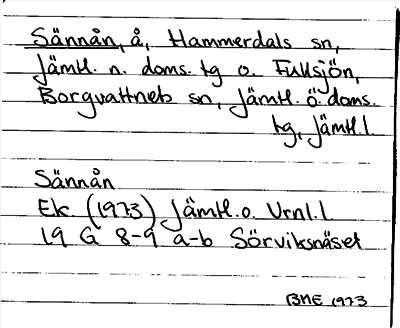 Sännån, å, Hammerdals sn,
Jämtl. n. doms. tg o. Fullsjön,
Borgvattnets sn, Jämtl. ö. doms.
tg, Jämtl. l
Sännån
Ek. (1973) Jämtl. o. Vrnl. l
19 G 8-9 a-b Sörviksnäset
BME 1973